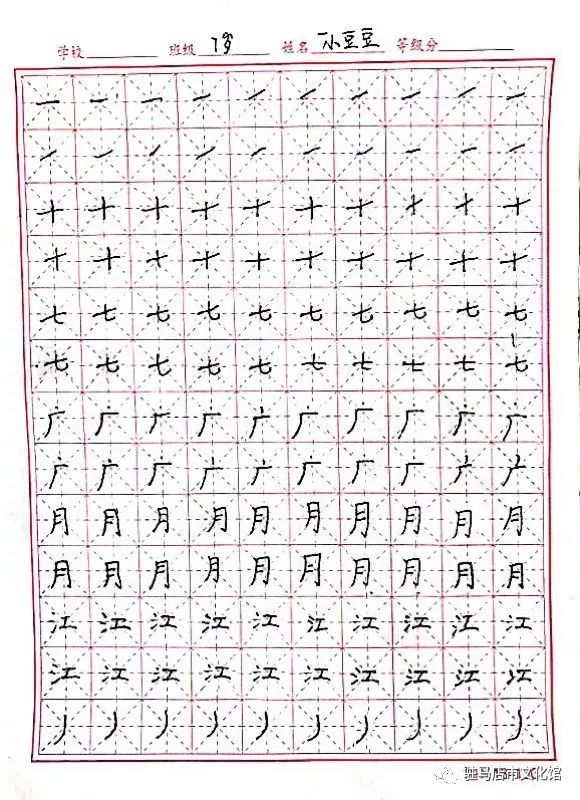 学校 班级 7岁 姓名 小豆豆 等级分
一 一 一 一 一 一 一 一 一 一
一 一 一 一 一 一 一 一 一 一
十 十 十 十 十 十 十 十 十 十
十 十 十 十 十 十 十 十 十 十
七 七 七 七 七 七 七 七 七 七
七 七 七 七 七 七 七 七 七 七
广 广 广 广 广 广 广 广 广 广
广 广 广 广 广 广 广 广 广 广
月 月 月 月 月 月 月 月 月 月
月 月 月 月 月 月 月 月 月 月
江 江 江 江 江 江 江 江 江 江
江 江 江 江 江 江 江 江 江 江
丿 丿 丿 丿 丿 丿 丿 丿 丿 丿
驻马店市文化馆